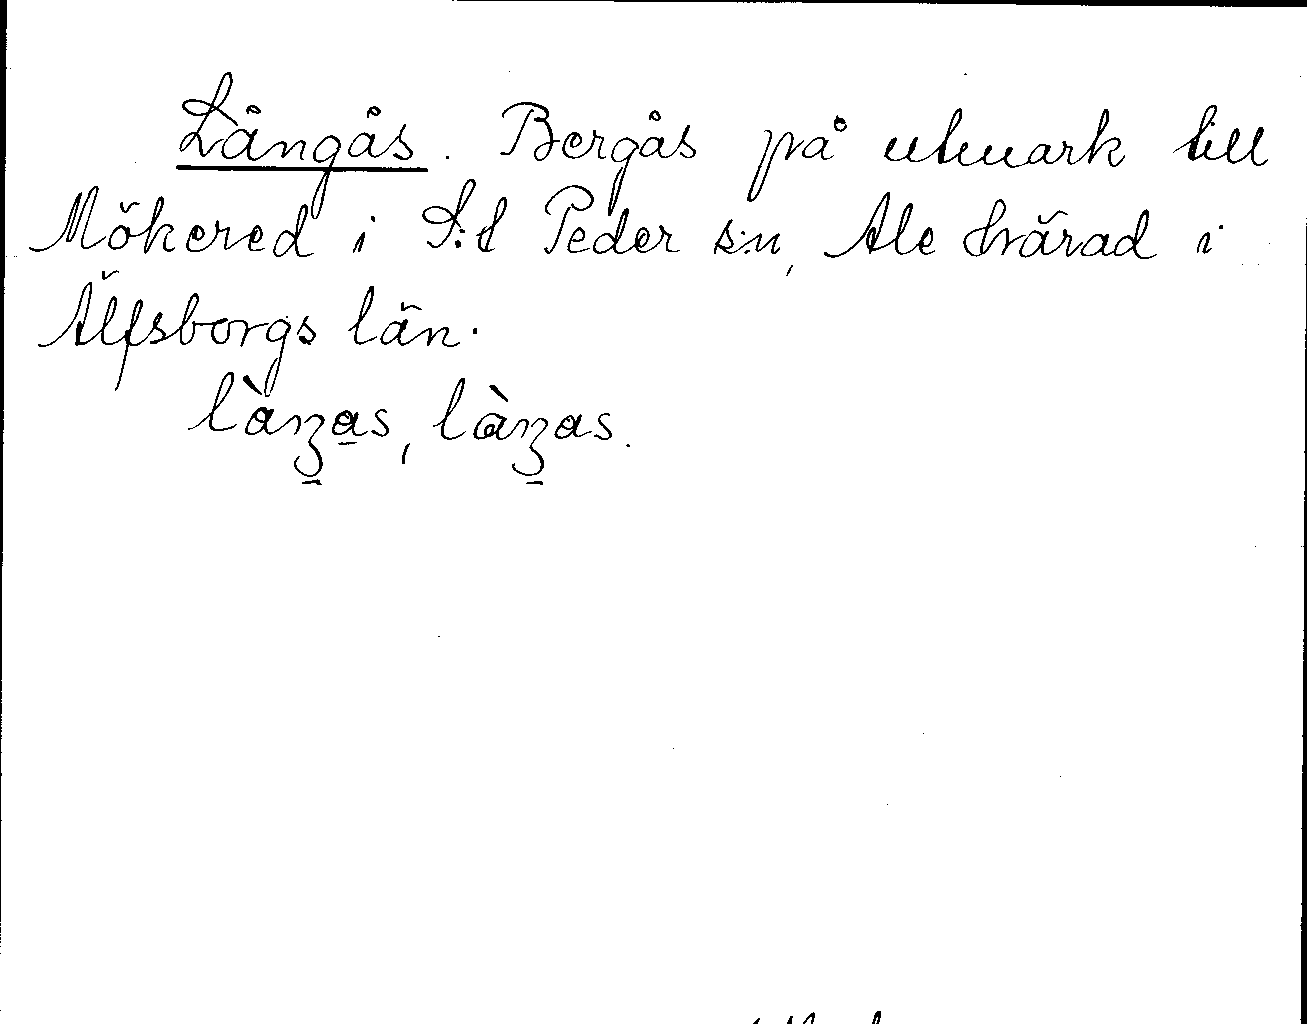 Långås. Bergås på utmark till
Mökered i S:t Peder s:n, Ale härad i
Älfsborgs län.
làŋas, làŋas.